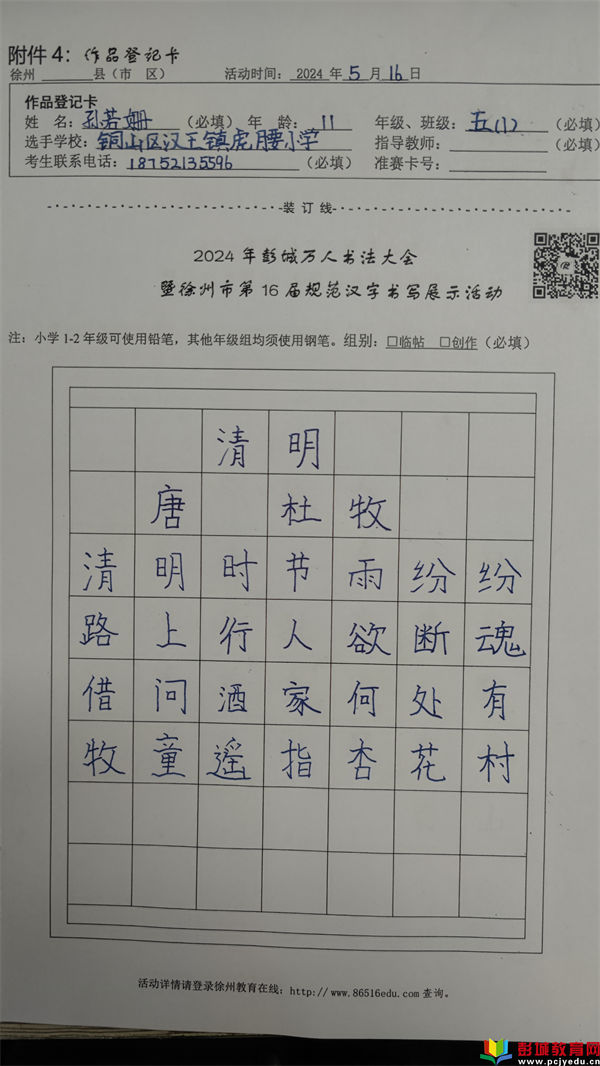 附件 4：作品登记卡
徐州 ______ 县（市 区） 活动时间：2024 年 5 月 16 日
作品登记卡
姓 名：孙若姗 （必填） 年 龄：11 年级、班级：五(1) （必填）
选手学校：铜山区汉王镇虎腰小学 指导教师：______ （必填）
考生联系电话：18752135596 （必填） 准赛卡号：______
装 订 线
2024 年彭城万人书法大会
暨徐州市第 16 届规范汉字书写展示活动
注：小学 1-2 年级可使用铅笔，其他年级组均须使用钢笔。组别：□临帖 □创作（必填）
清明
唐 杜牧
清明时节雨纷纷
路上行人欲断魂
借问酒家何处有
牧童遥指杏花村
活动详情请登录徐州教育在线：http://www.86516edu.com 查询。
彭城教育网
www.pcjyedu.cn